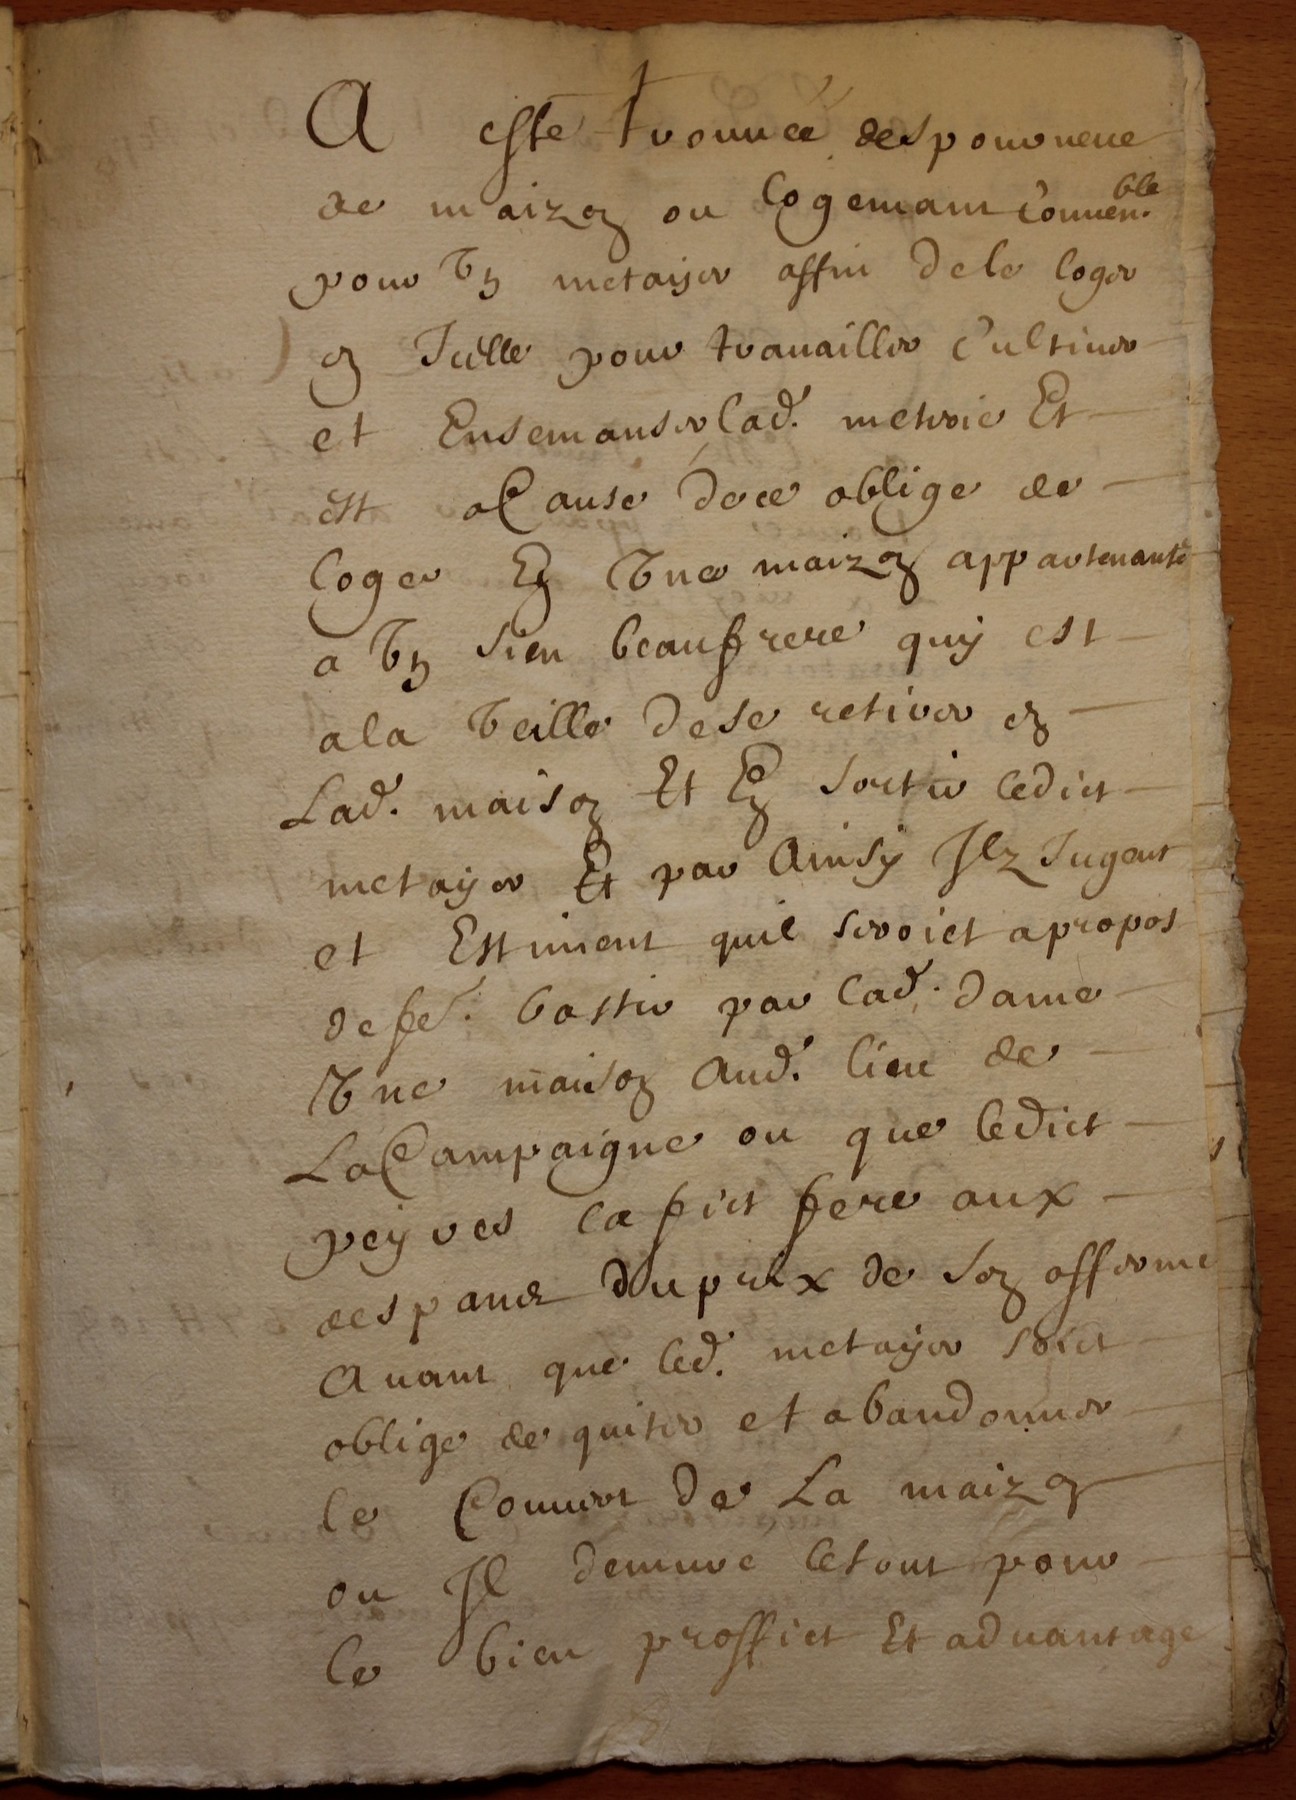 A esté trouvée despourveue
de maizon ou logemant conven.ble
pour un metaier affin de le loger
en icelle pour travailler cultiver
et ensemanser lad. metrie et
est a cause de ce oblige de
loger en une maizon appartenante
a un sien beaufrere quy est
a la veille de se retirer en
lad. maison et en sortir ledict
metayer et par ainsy ilz jugent
et estiment quil seroict a propos
de fe. bastir par lad. dame
une maison aud. lieu de
La Campaigne ou que ledict
peyres la fict fere aux
despanz du prix de son afferme
avant que led. metayer soict
oblige de quiter et abandonner
le couvert de la maizon
ou il demure le tout pour
le bien proffict et advantage